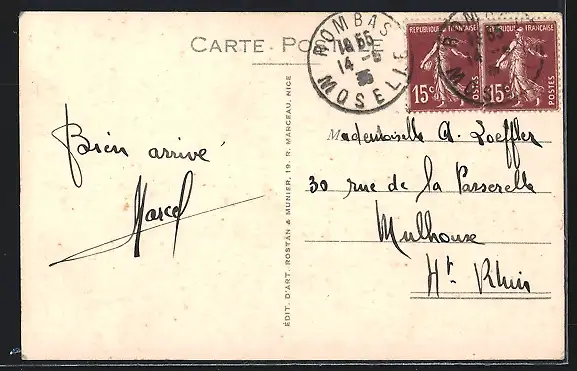 CARTE POSTALE
ROMBAS
18 55
14 - 5
36
MOSELLE
REPUBLIQUE FRANÇAISE
15c
POSTES
REPUBLIQUE FRANÇAISE
15c
POSTES
Bien arrivé
Marcel
EDIT. D'ART. ROSTAN & MUNIER, 19, R. MARCEAU, NICE
Mademoiselle A. Loeffler
30 rue de la Passerelle
Mulhouse
Ht. Rhin